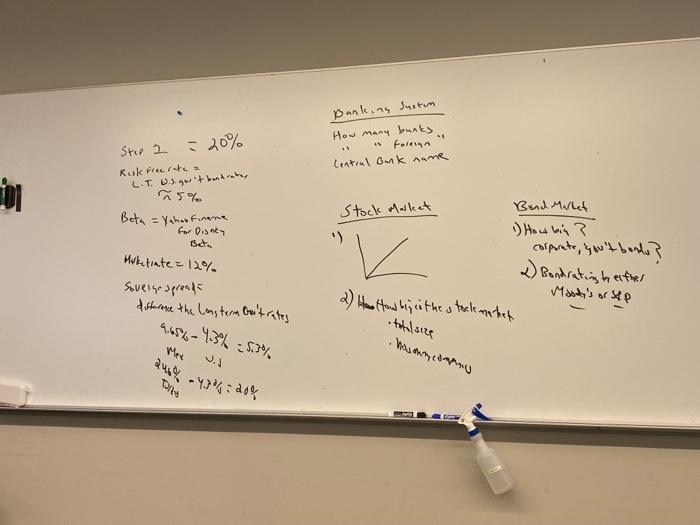 Step 1 = 20%
Risk free rate =
L.T. U.S. gov't bond rates
≈ 5%
Beta = Yahoo Finance
for Disney
Beta
Mkt rate = 12%
difference the long term Gov't rates
9.65% - 4.30% = 5.30%
Mex U.S
- 4.30% = 20%
Banking System
How many banks
" " foreign
Central Bank name
Stock Market
1)
2) How big is the stock market
• total size
• how many company
Bond Market
1) How big?
corporate, gov't bonds?
2) Bond rating by either
Moody's or S&P